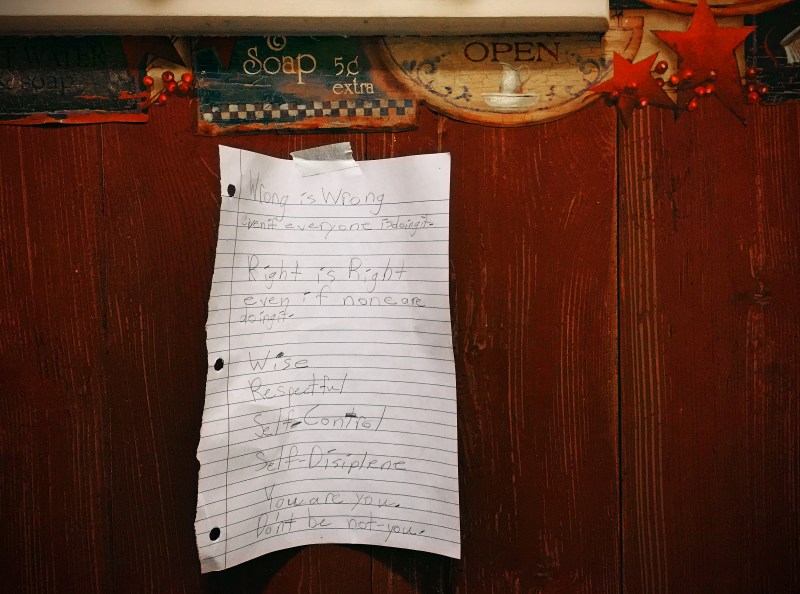 WATER
& soap
Soap 5¢
extra
OPEN
Wrong is Wrong
even if everyone is doing it.
Right is Right
even if none are
doing it.
Wise
Respectful
Self-Control
Self-Disiplene
You are you.
Don't be not-you.